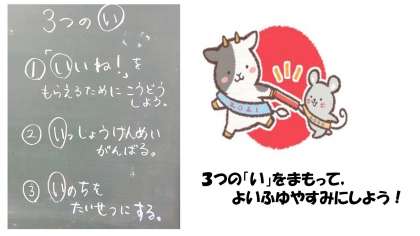 3つの い
①「いいね!」を
もらえるために こうどう
しよう。
② いっしょうけんめい
がんばる。
③ いのちを
たいせつに する。
3つの「い」をまもって、
よいふゆやすみにしよう!